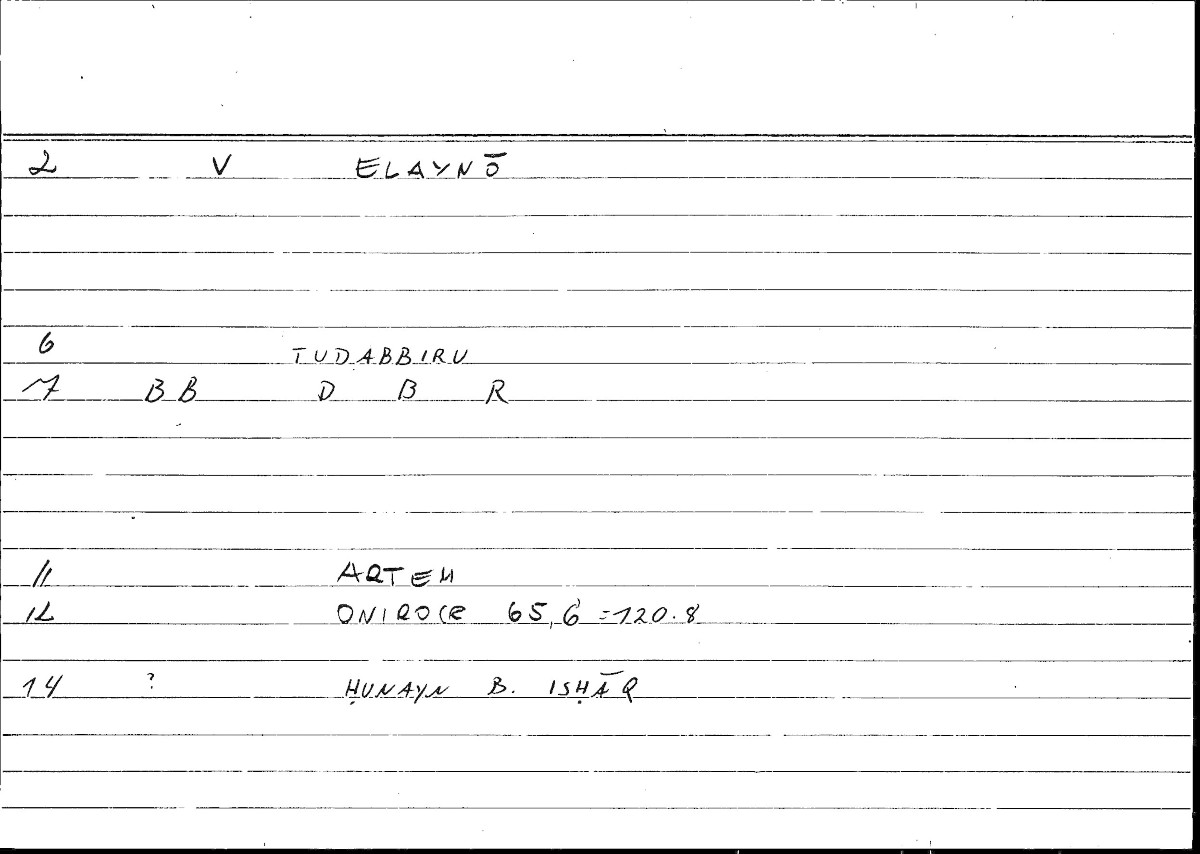 2 V ELAYNŌ
6 TUDABBIRU
7 BB D B R
11 ARTEM
12 ONIROCR 65,6 = 120.8
14 ? ḤUNAYN B. ISḤĀQ